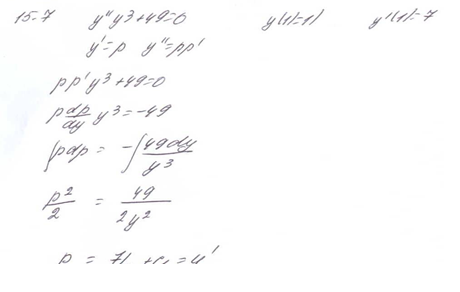 15-7 y''y³+49=0 y(1)=1) y'(1)=7
y'=p y''=pp'
pp'y³+49=0
p dp/dy y³=-49
∫pdp = -∫49dy/y³
p²/2 = 49/2y²
p = 7/